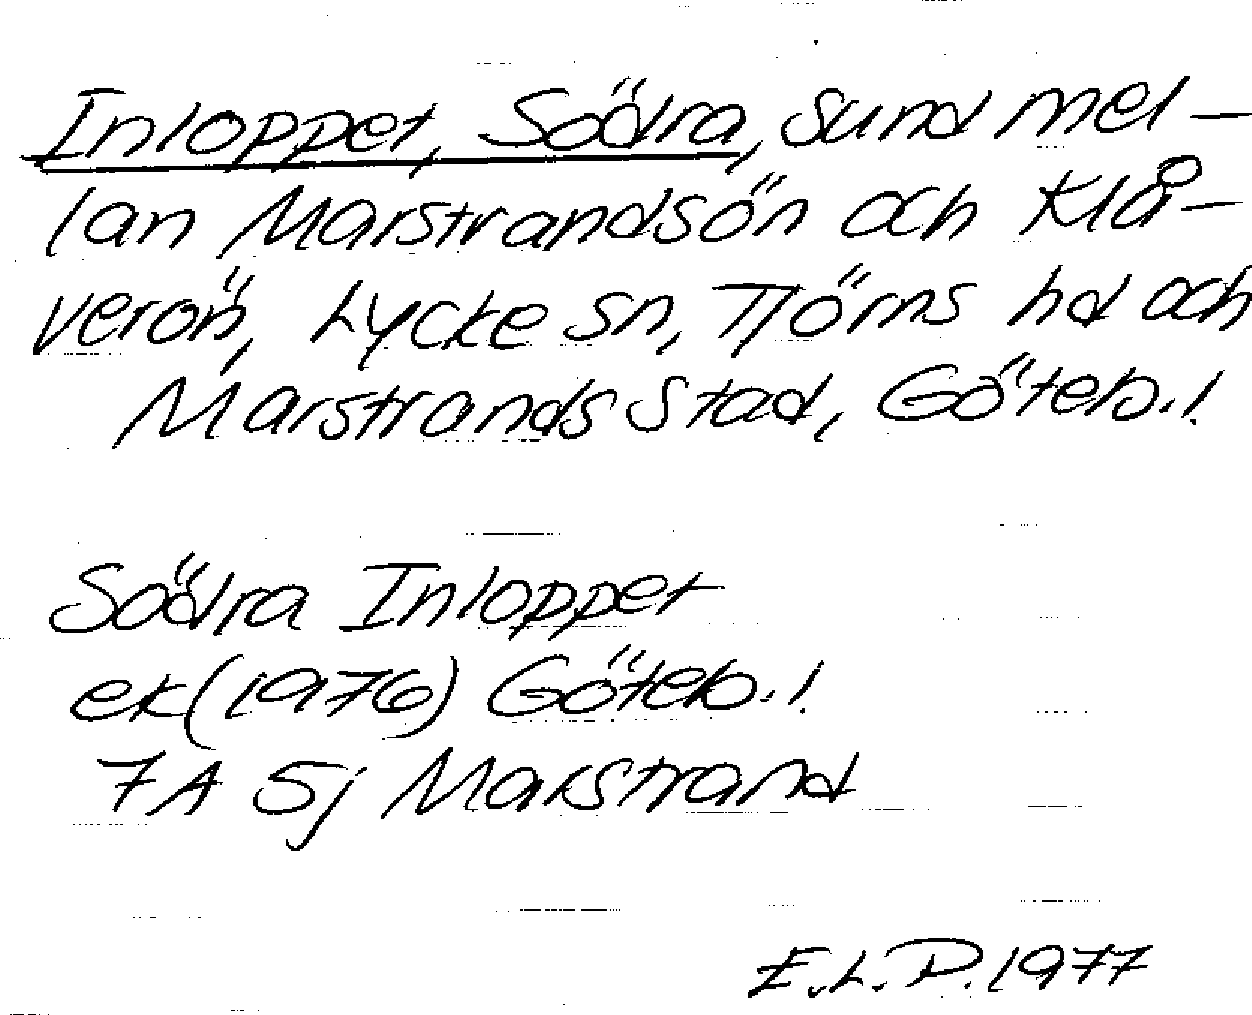 Inloppet, Södra, sund mel-
lan Marstrandsön och Klå-
verön, Lycke sn, Tjörns hd och
Marstrands stad, Göteb. l.
Södra Inloppet
ek (1976) Göteb. l.
7A Sj Marstrand
E.L.P. 1977